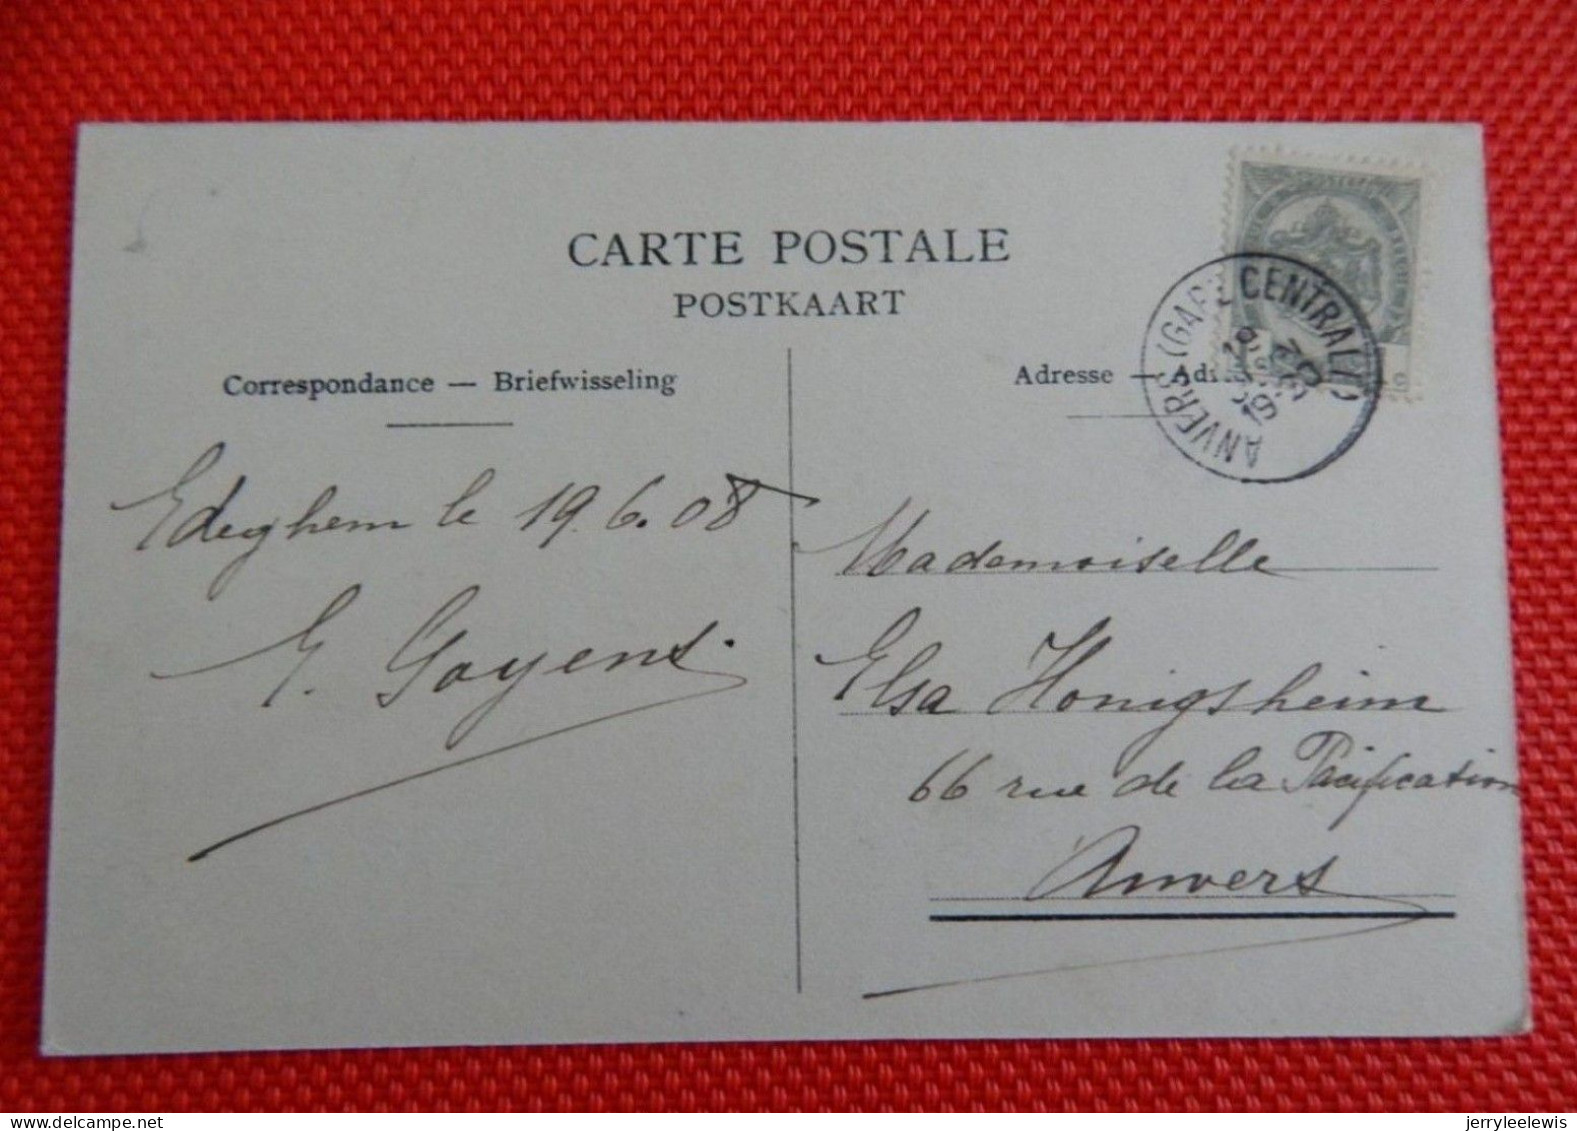 CARTE POSTALE
POSTKAART
Correspondance — Briefwisseling
Adresse —
ANVERS (GARE CENTRALE)
Edeghem le 19.6.08
E. Goyens.
Mademoiselle
Elsa Honigsheim
66 rue de la Pacification
Anvers
delcampe.net
jerryleelewis